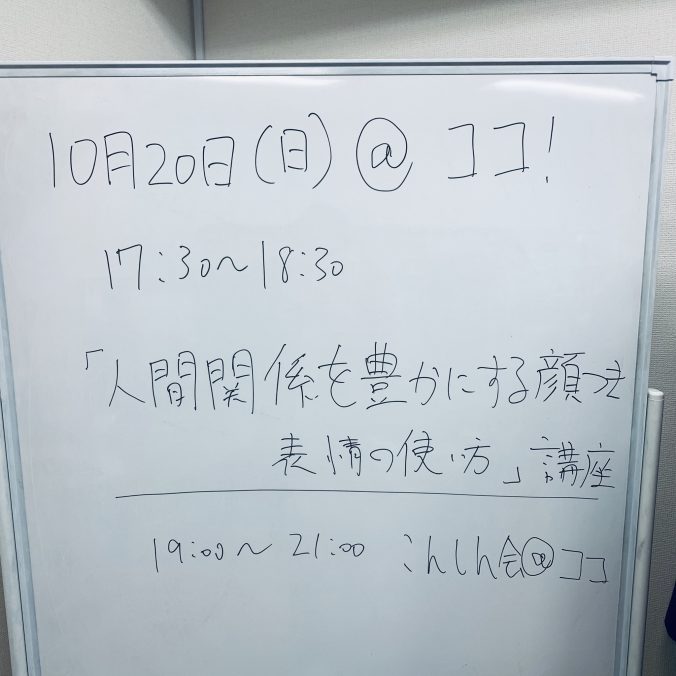 10月20日(日)@ココ!
17:30〜18:30
「人間関係を豊かにする顔つき
表情の使い方」講座
19:00〜21:00 こんしん会@ココ